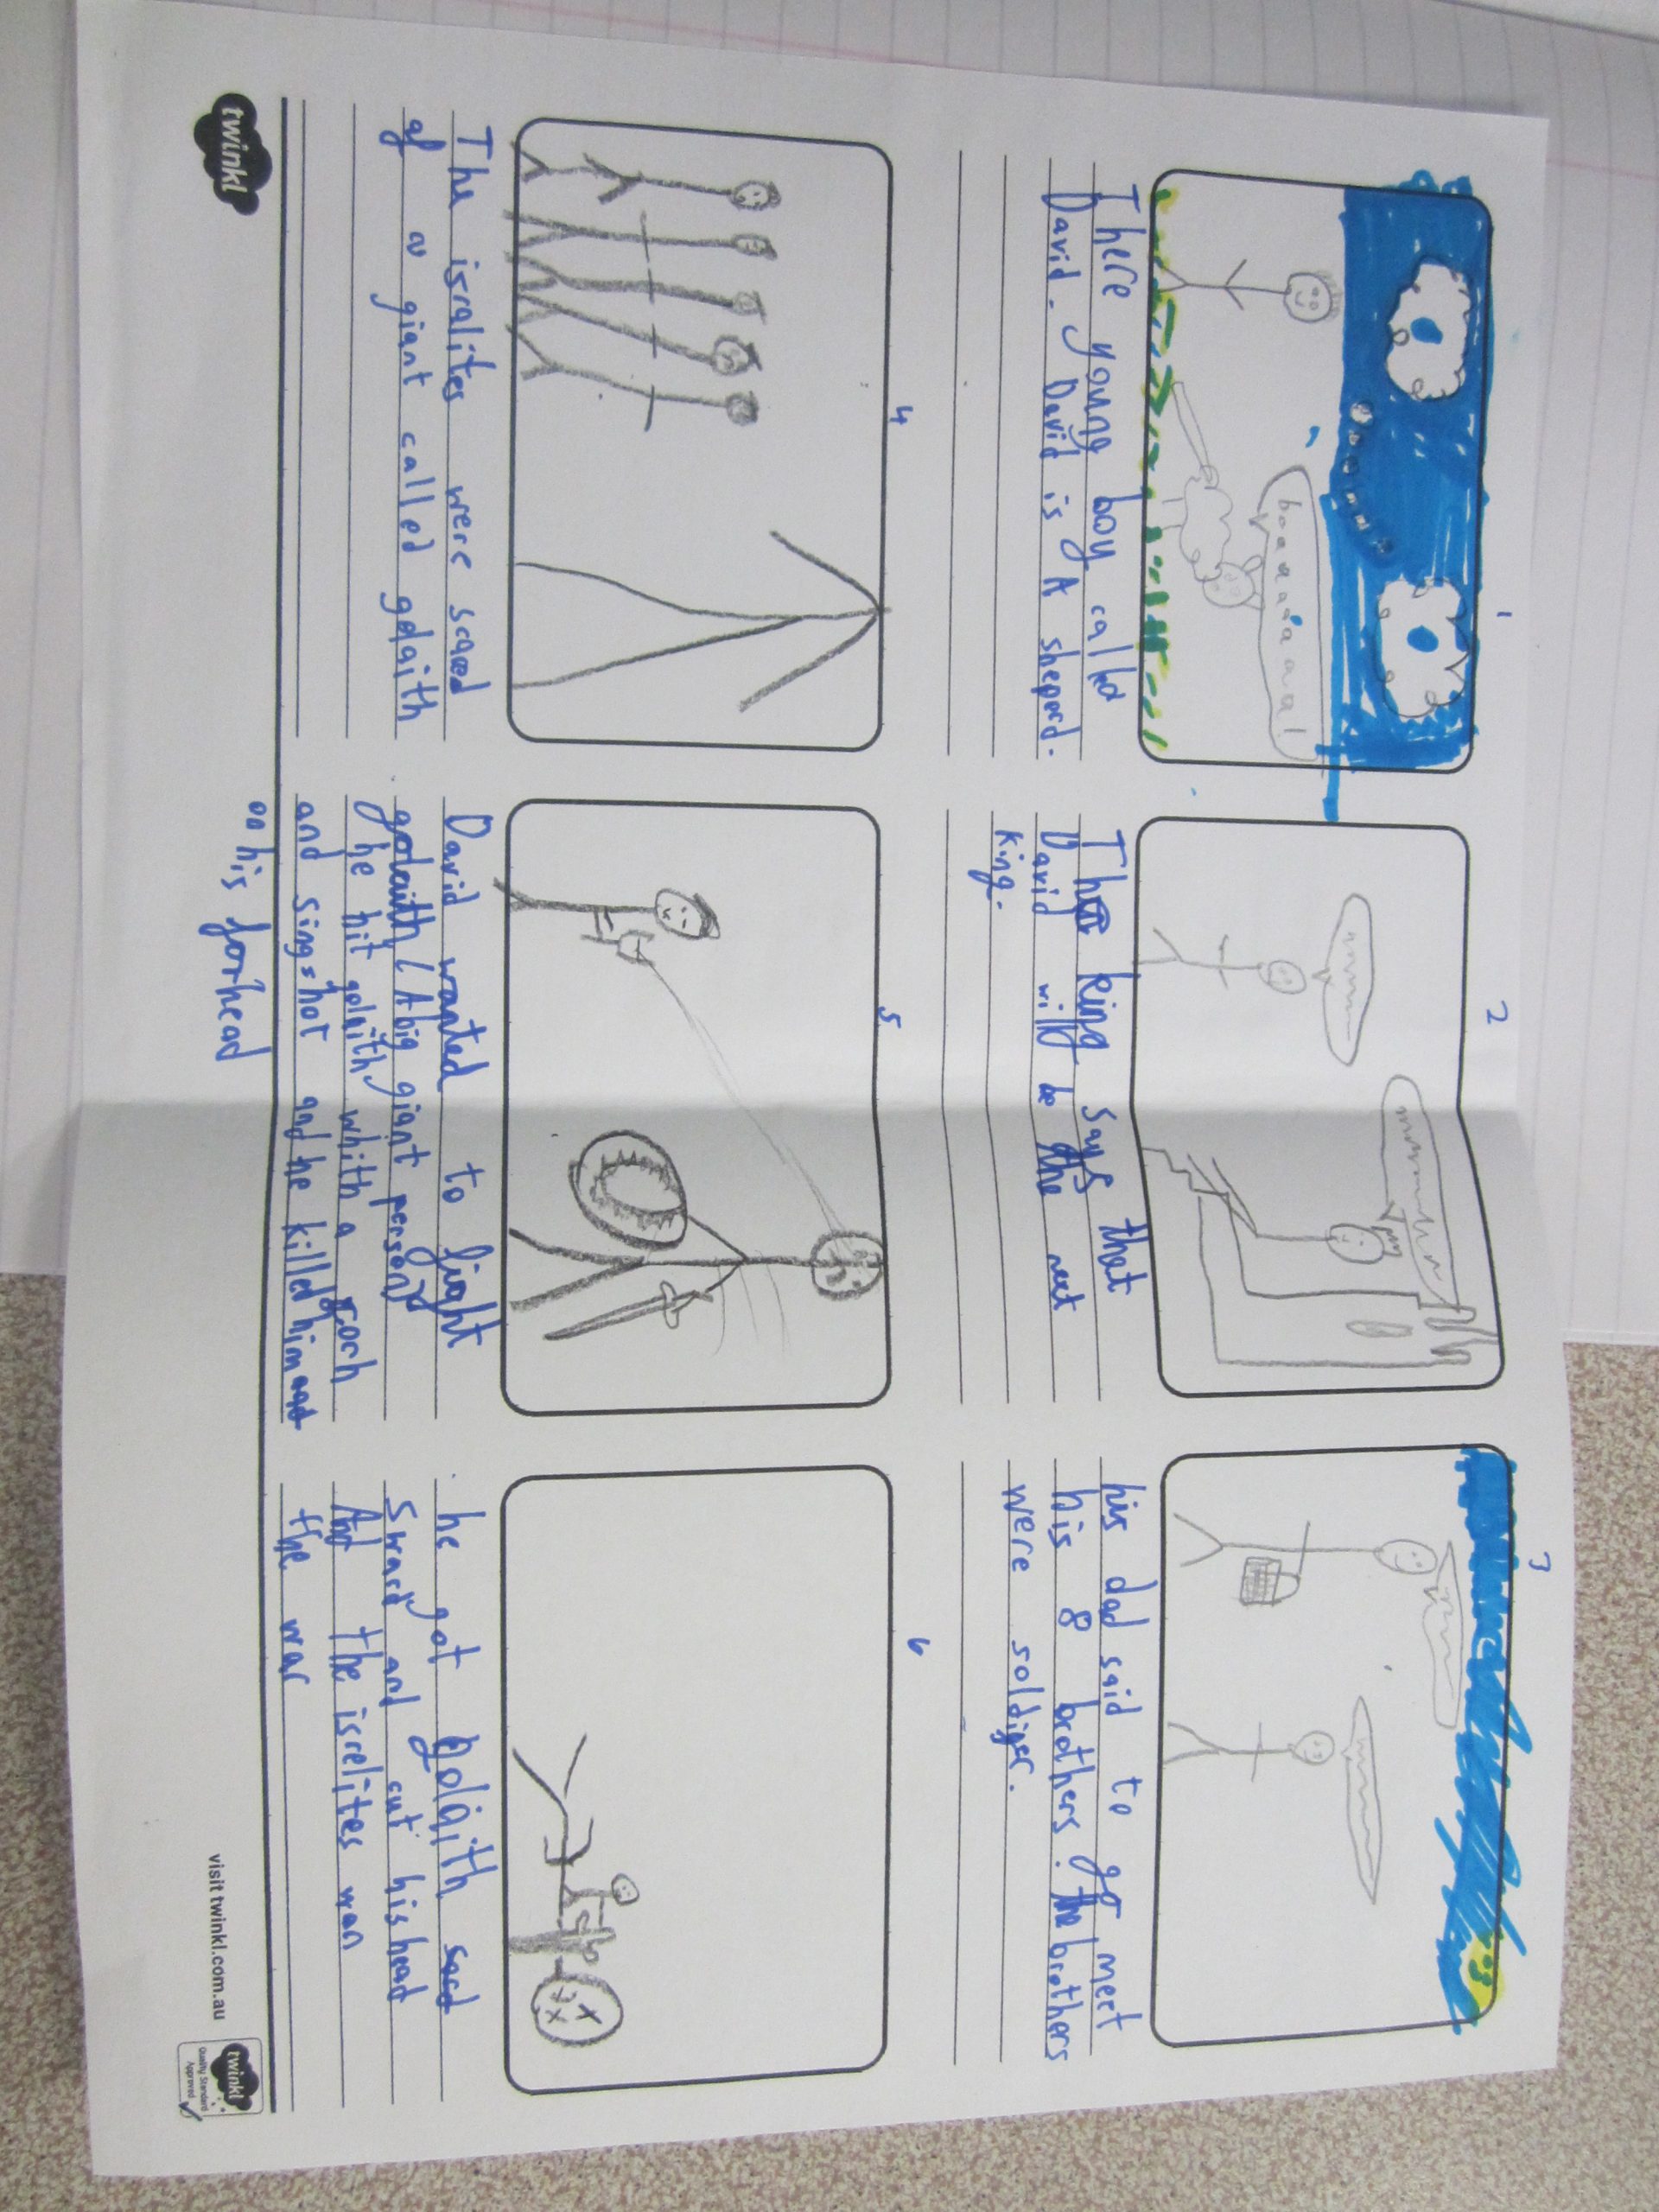 1
baaaaaaaa!
There young boy called
David. David is A sheperd.
2
The king says that
David will be the next
king.
3
his dad said to go meet
his 8 brothers. the brothers
were soldiger.
4
The isralites were scared
of a giant called golaith
5
David wanted to fight
golaith (A big giant person)
he hit golaith whith a
and singshot and he killed him and
on his forhead
6
he got golaith sord
Sward and cut his head
And the isrelites won
the war
twinkl
visit twinkl.com.au
twinkl
Quality Standard
Approved